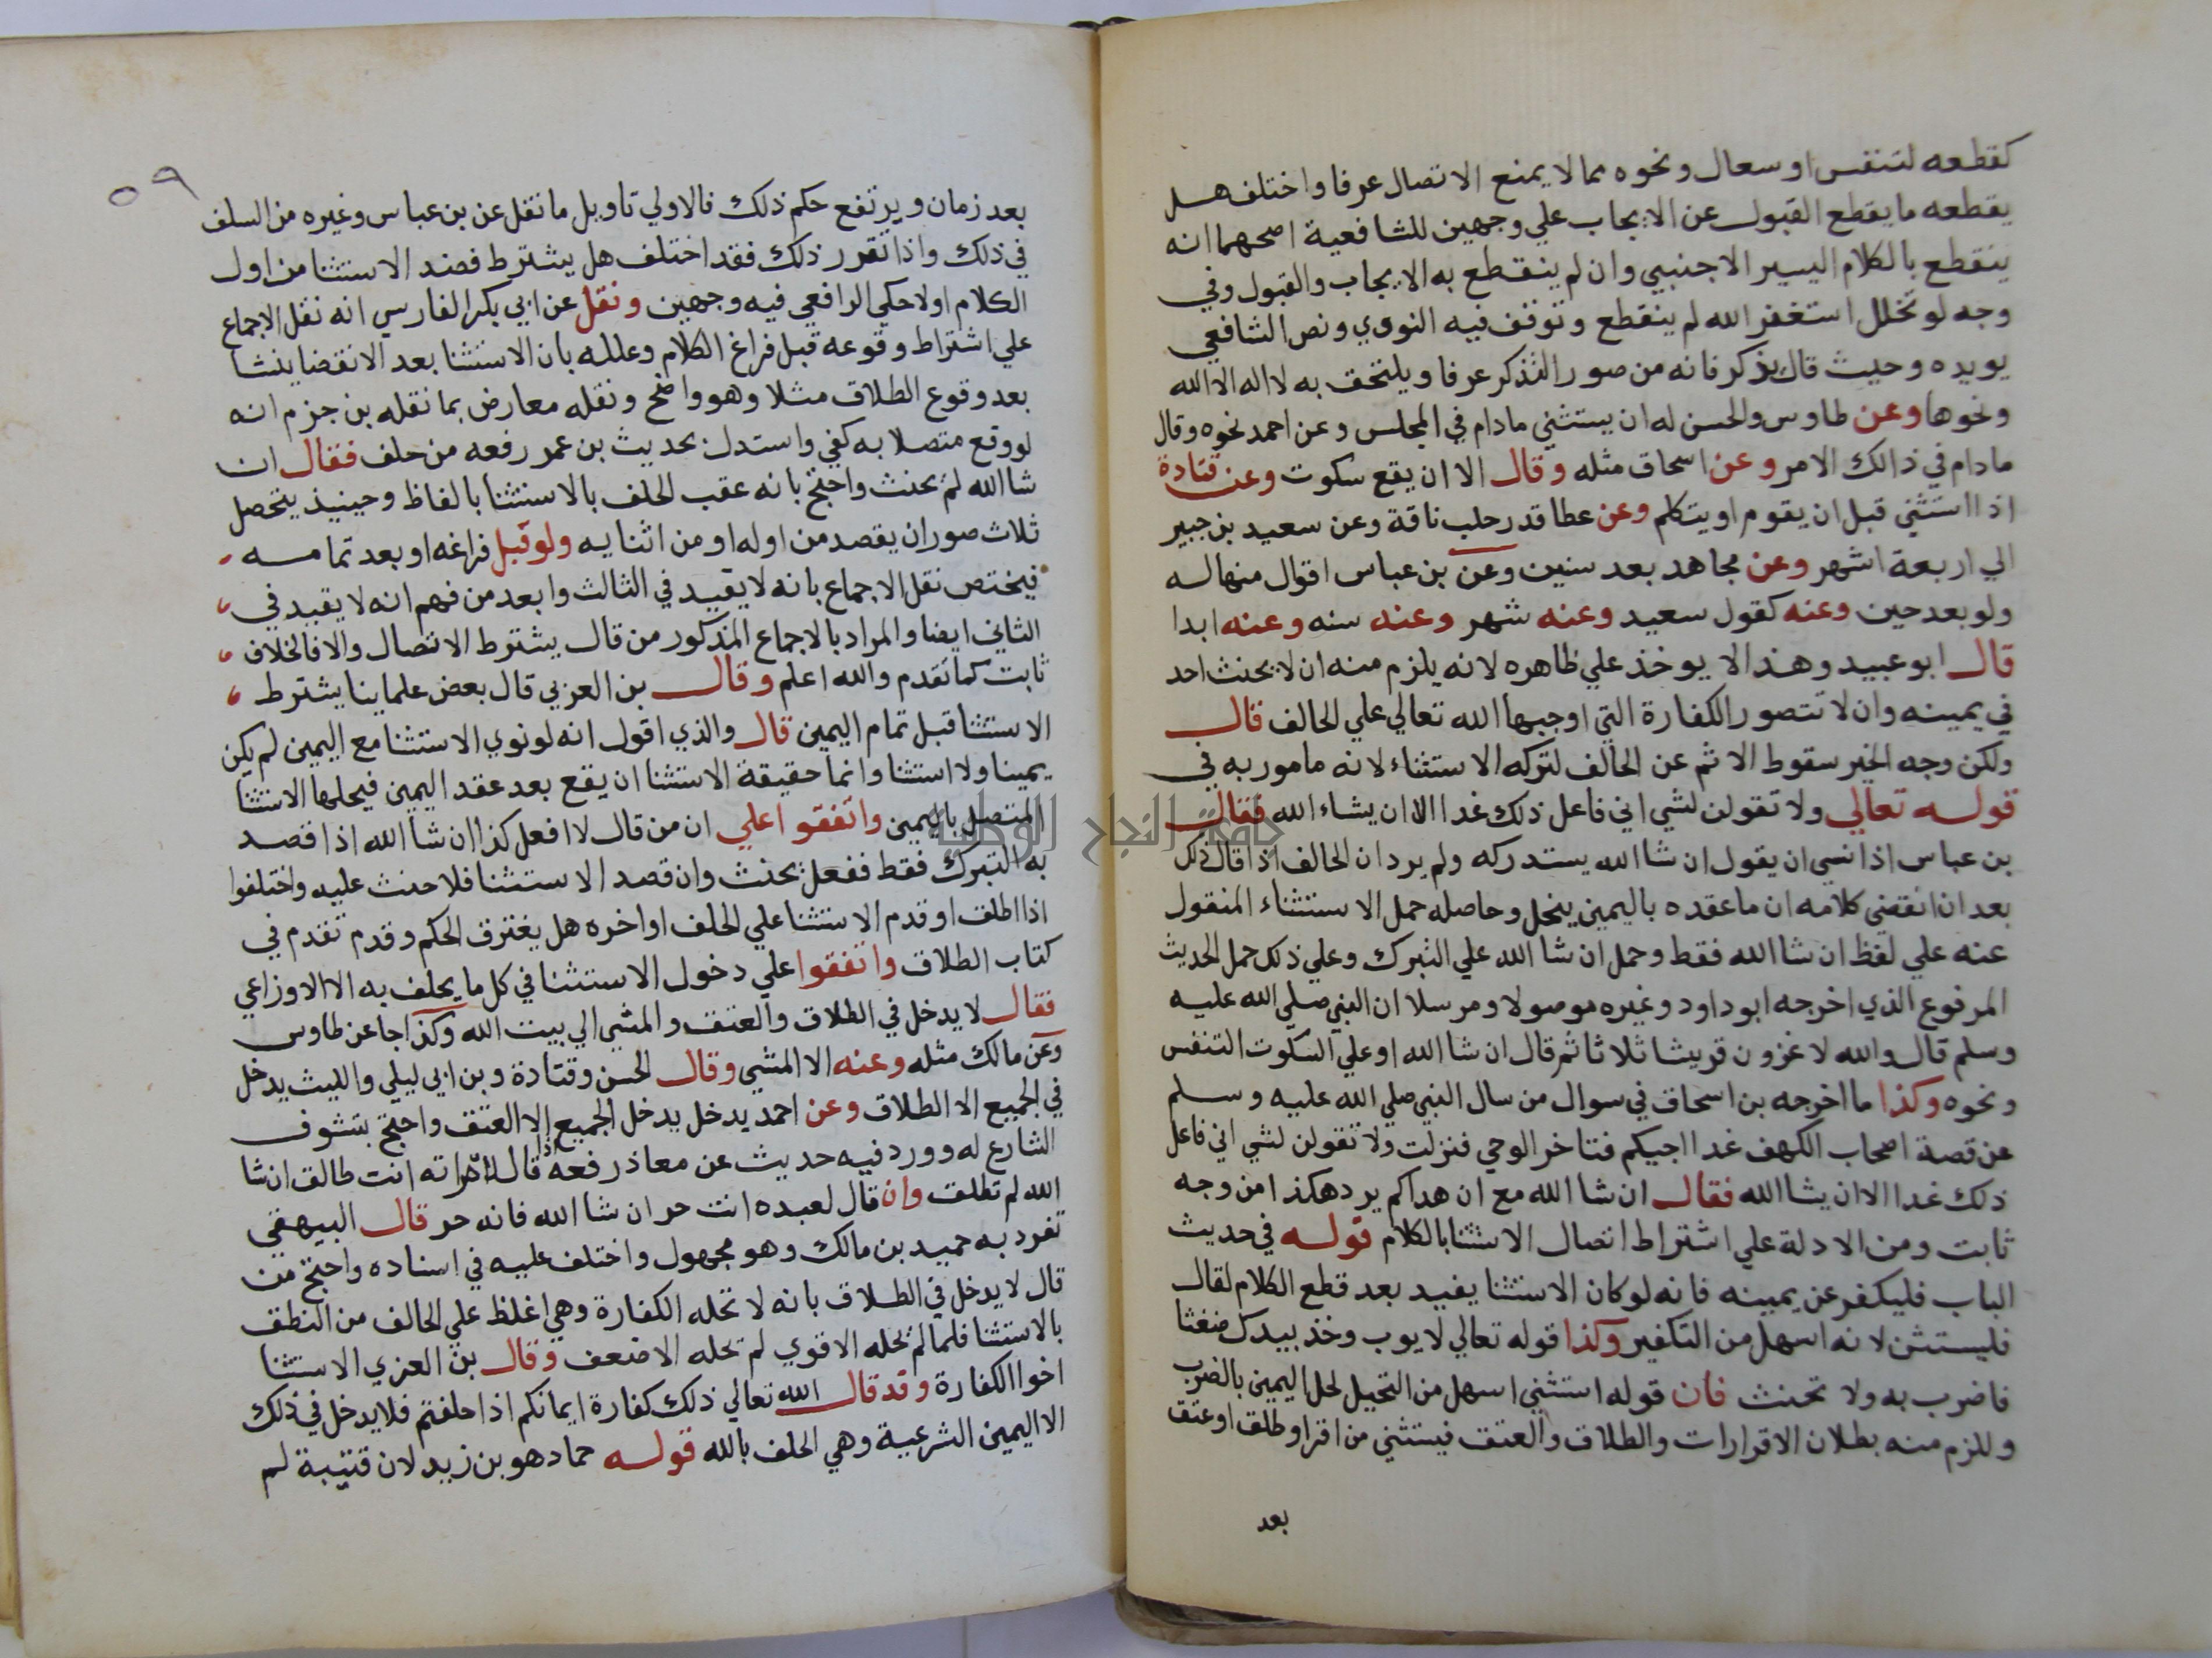 كقطعه لتنفس او سعال ونحوه مما لا يمنع الاتصال عرفا واختلف هل
يقطعه ما يقطع القبول عن الايجاب علي وجهين للشافعية اصحهما انه
ينقطع بالكلام اليسير الاجنبي وان لم ينقطع به الايجاب والقبول وفي
وجه لو تخلل استغفر الله لم ينقطع وتوقف فيه النووي ونص الشافعي
يويده وحيث قال بذكر فانه من صور التذكر عرفا ويلتحق به لا اله الا الله
ونحوها وعن طاوس والحسن له ان يستثني ما دام في المجلس وعن احمد نحوه وقال
ما دام في ذالك الامر وعن اسحاق مثله وقال الا ان يقع سكوت وعن قتادة
اذا استثني قبل ان يقوم او يتكلم وعن عطا قدر حلب ناقة وعن سعيد بن جبير
الي اربعة اشهر وعن مجاهد بعد سنين وعن بن عباس اقوال منها له
ولو بعد حين وعنه كقول سعيد وعنه شهر وعنه سنه وعنه ابدا
قال ابو عبيد وهذا لا يوخذ علي ظاهره لانه يلزم منه ان لا يحنث احد
في يمينه وان لا تتصور الكفارة التي اوجبها الله تعالي علي الحالف قال
ولكن وجه الخبر سقوط الاثم عن الحالف لتركه الاستثناء لانه مامور به في
قوله تعالي ولا تقولن لشي اني فاعل ذلك غدا الا ان يشاء الله فقال
بن عباس اذا نسي ان يقول ان شا الله يستدركه ولم يرد ان الحالف اذا قال ذلك
بعد ان انقضي كلامه ان ما عقده باليمين ينحل وحاصله حمل الاستثناء المنقول
عنه علي لفظ ان شا الله فقط وحمل ان شا الله علي التبرك وعلي ذلك حمل الحديث
المرفوع الذي اخرجه ابو داود وغيره موصولا ومرسلا ان النبي صلي الله عليه
وسلم قال والله لاغزون قريشا ثلاثا ثم قال ان شا الله او علي السكوت التنفس
ونحوه وكذا ما اخرجه بن اسحاق في سوال من سال النبي صلي الله عليه وسلم
عن قصة اصحاب الكهف غدا اجيكم فتاخر الوحي فنزلت ولا تقولن لشي اني فاعل
ذلك غدا الا ان يشا الله فقال ان شا الله مع ان هدا كم يرد هكذا من وجه
ثابت ومن الادلة علي اشتراط اتصال الاستثنا بالكلام قوله في حديث
الباب فليكفر عن يمينه فانه لو كان الاستثنا يفيد بعد قطع الكلام لقال
فليستثن لانه اسهل من التكفير وكذا قوله تعالي لايوب وخذ بيدك ضغثا
فاضرب به ولا تحنث فان قوله استثني اسهل من التحيل لحل اليمين بالضرب
وللزم منه بطلان الاقرارات والطلاق والعتق فيستثني من اقر او طلق او عتق
بعد
٥٩
بعد زمان ويرتفع حكم ذلك فالاولي تاويل ما نقل عن بن عباس وغيره من السلف
في ذلك واذا تقرر ذلك فقد اختلف هل يشترط قصد الاستثنا من اول
الكلام اولا حكي الرافعي فيه وجهين ونقل عن ابي بكر الفارسي انه نقل الاجماع
علي اشتراط وقوعه قبل فراغ الكلام وعلله بان الاستثنا بعد الانقضا ينشا
بعد وقوع الطلاق مثلا وهو واضح ونقله معارض بما نقله بن حزم انه
لو وقع متصلا به كفي واستدل بحديث بن عمر رفعه من حلف فقال ان
شا الله لم يحنث واحتج بانه عقب الحلف بالاستثنا بالفاظ وحينيذ يتحصل
ثلاث صور ان يقصد من اوله او من اثنايه ولو قبل فراغه او بعد تمامه
فيختص نقل الاجماع بانه لا يفيد في الثالث وابعد من فهم انه لا يفيد في
الثاني ايضا والمراد بالاجماع المذكور من قال يشترط الاتصال والا فالخلاف
ثابت كما تقدم والله اعلم وقال بن العربي قال بعض علماينا يشترط
الاستثنا قبل تمام اليمين قال والذي اقول انه لو نوي الاستثنا مع اليمين لم يكن
يمينا ولا استثنا وانما حقيقة الاستثنا ان يقع بعد عقد اليمين فيحلها الاستثنا
المتصل باليمين واتفقوا علي ان من قال لا افعل كذا ان شا الله اذا قصد
به التبرك فقط ففعل يحنث وان قصد الاستثنا فلا حنث عليه واختلفوا
اذا اطلق او قدم الاستثنا علي الحلف او اخره هل يفترق الحكم وقدم تقدم في
كتاب الطلاق واتفقوا علي دخول الاستثنا في كل ما يحلف به الا الاوزاعي
فقال لا يدخل في الطلاق والعتق والمشي الي بيت الله وكذا جا عن طاوس
وعن مالك مثله وعنه الا المشي وقال الحسن وقتادة وبن ابي ليلي والليث يدخل
في الجميع الا الطلاق وعن احمد يدخل يدخل الجميع الا العتق واحتج بتشوف
الشارع له وورد فيه حديث عن معاذ رفعه اذا قال لامراته انت طالق ان شا
الله لم تطلق وان قال لعبده انت حر ان شا الله فانه حر قال البيهقي
تفرد به حميد بن مالك وهو مجهول واختلف عليه في اسناده واحتج من
قال لا يدخل في الطلاق بانه لا تحله الكفارة وهي اغلظ علي الحالف من النطق
بالاستثنا فلما لم يحله الاقوي لم تحله الاضعف وقال بن العربي الاستثنا
اخوا الكفارة وقد قال الله تعالي ذلك كفارة ايمانكم اذا حلفتم فلا يدخل في ذلك
الا اليمين الشرعية وهي الحلف بالله قوله حماد هو بن زيد لان قتيبة لم
جامعة النجاح الوطنية